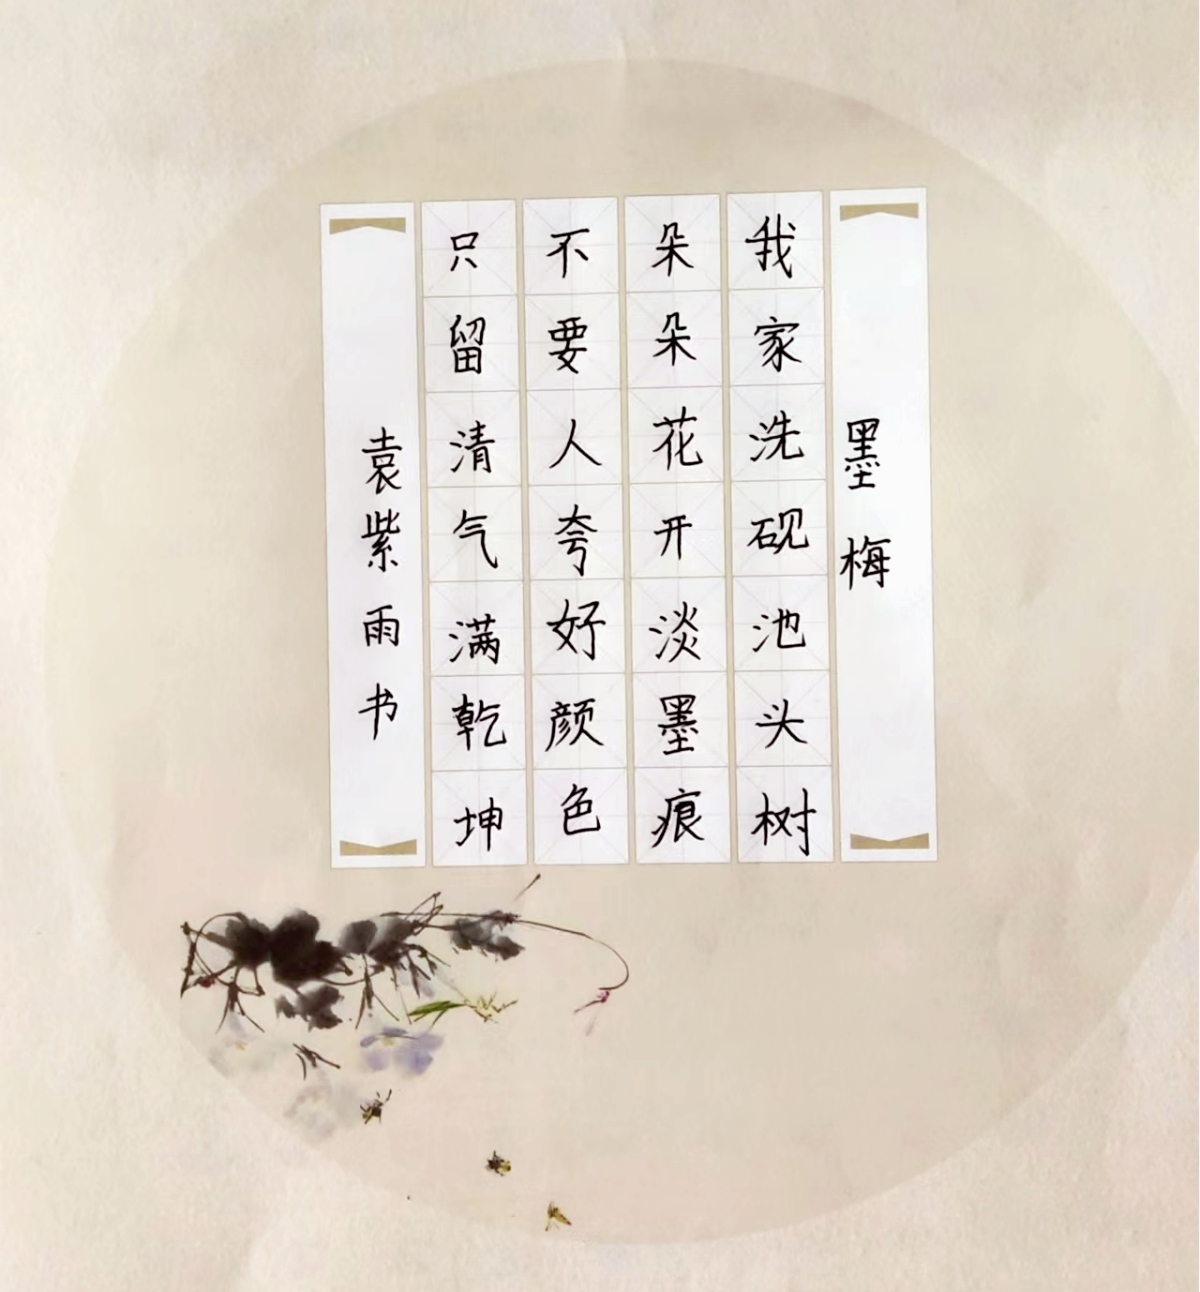 墨梅
我家洗砚池头树
朵朵花开淡墨痕
不要人夸好颜色
只留清气满乾坤
袁紫雨书